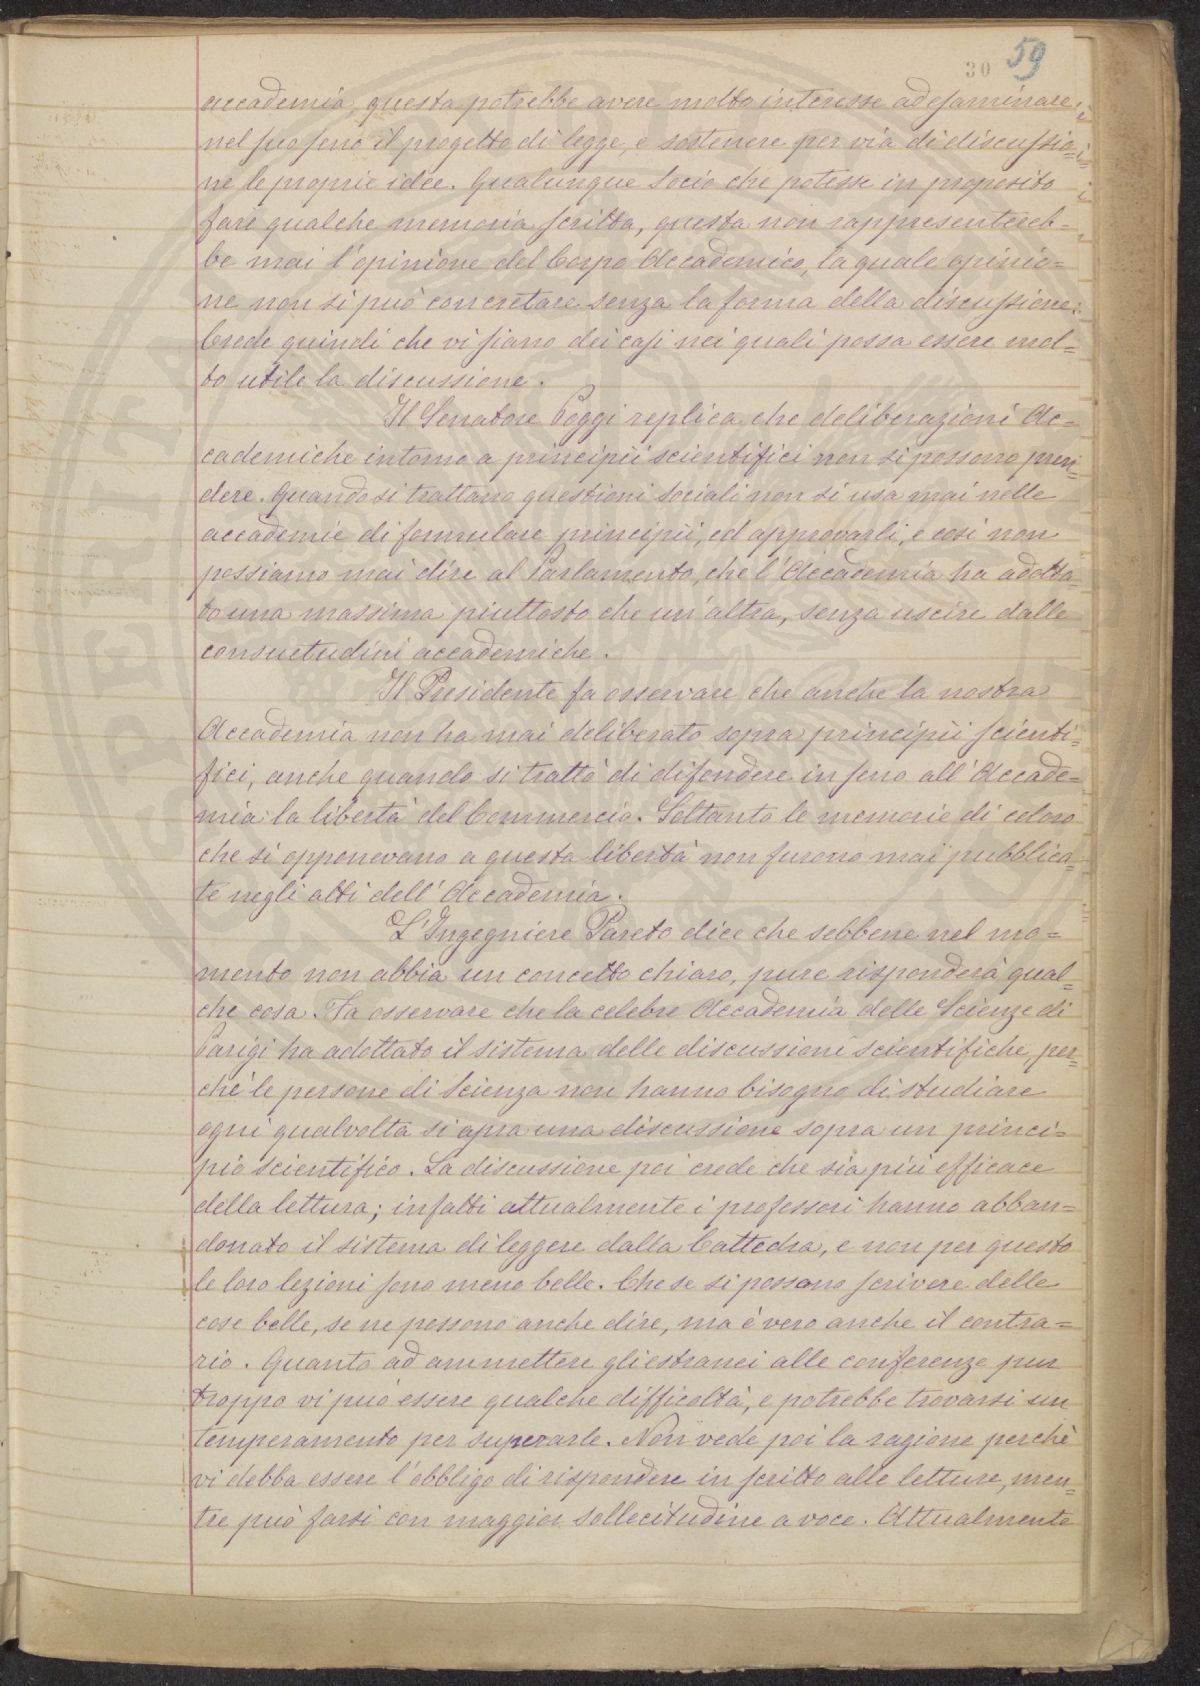 30 59
accademia, questa potrebbe avere molto interesse ad esaminare
nel suo seno il progetto di legge, e sostenere per via di discussio=
ne le proprie idee. Qualunque Socio che potesse in proposito
fare qualche memoria scritta, questa non rappresentereb=
be mai l'opinione del Corpo Accademico, la quale opinio=
ne non si può concretare senza la forma della discussione:
Crede quindi che vi siano dei casi nei quali possa essere mol=
to utile la discussione.
Il Senatore Poggi replica che deliberazioni Ac=
cademiche intorno a principii scientifici non si possono pren=
dere. Quando si trattano questioni sociali non si usa mai nelle
accademie di formulare principii, ed approvarli, e così non
possiamo mai dire al Parlamento, che l'Accademia ha adotta=
to una massima piuttosto che un'altra, senza uscire dalle
consuetudini accademiche.
Il Presidente fa osservare che anche la nostra
Accademia non ha mai deliberato sopra principii scienti=
fici, anche quando si trattò di difendere in seno all'Accade=
mia la libertà del Commercio. Soltanto le memorie di coloro
che si opponevano a questa libertà non furono mai pubblica=
te negli atti dell'Accademia.
L'Ingegniere Pareto dice che sebbene nel mo=
mento non abbia un concetto chiaro, pure risponderà qual=
che cosa. Fa osservare che la celebre Accademia delle Scienze di
Parigi ha adottato il sistema delle discussioni scientifiche, per=
chè le persone di Scienza non hanno bisogno di studiare
ogni qualvolta si apra una discussione sopra un princi=
pio scientifico. La discussione poi crede che sia più efficace
della lettura; infatti attualmente i professori hanno abban=
donato il sistema di leggere dalla Cattedra, e non per questo
le loro lezioni sono meno belle. Che se si possono scrivere delle
cose belle, se ne possono anche dire, ma è vero anche il contra=
rio. Quanto ad ammettere gli estranei alle conferenze pur
troppo vi può essere qualche difficoltà, e potrebbe trovarsi un
temperamento per superarle. Non vede poi la ragione perchè
vi debba essere l'obbligo di rispondere in scritto alle letture, men=
tre può farsi con maggior sollecitudine a voce. Attualmente